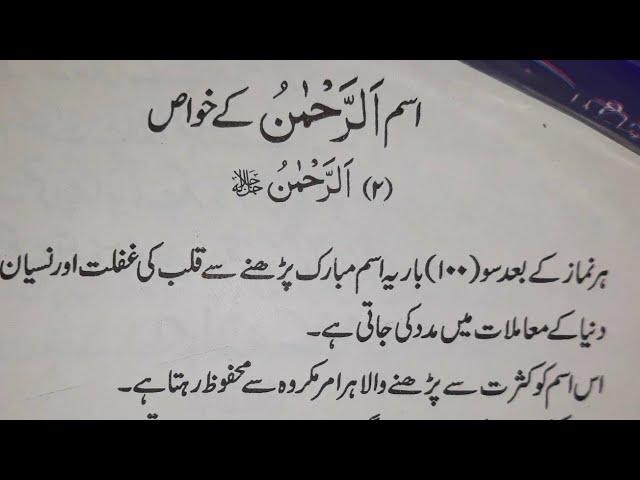 اسم اَلرَّحْمٰنُ کے خواص
(۲) اَلرَّحْمٰنُ ﷻ
ہر نماز کے بعد سو (۱۰۰) بار یہ اسم مبارک پڑھنے سے قلب کی غفلت اور نسیان
دنیا کے معاملات میں مدد کی جاتی ہے۔
اس اسم کو کثرت سے پڑھنے والا ہر امر مکروہ سے محفوظ رہتا ہے۔